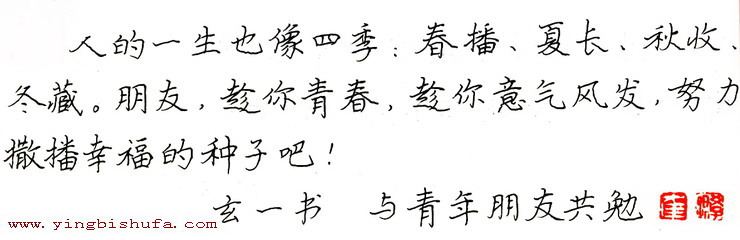 人的一生也像四季：春播、夏长、秋收、
冬藏。朋友，趁你青春，趁你意气风发，努力
撒播幸福的种子吧！
玄一书 与青年朋友共勉
www.yingbishufa.com